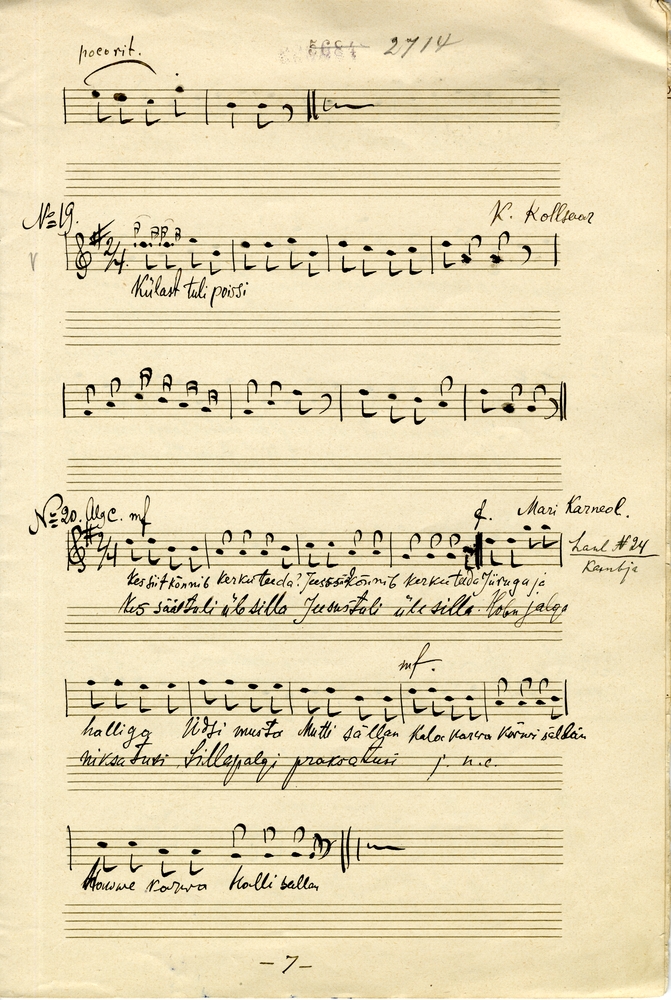 poco rit. 5681 2714
№ 19. K. Kollsaar
2/4
Külast tuli poissi
№ 20. Algc. mf f. Mari Karneol.
2/4 Laul # 24
Kambja
Kes siit kõnnib kerkuteeda? kõnnib kerkuteeda Jüruga ja
Kes säält tuli üle silla Jeesus tuli üle silla. Hobu jalga
mf.
halliga Üdsi musta Mutti sällan Kala karva Kõrvi sällän
niksatusi Sillapalgi praksatusi j. n. e.
karva Halli sellan
– 7 –